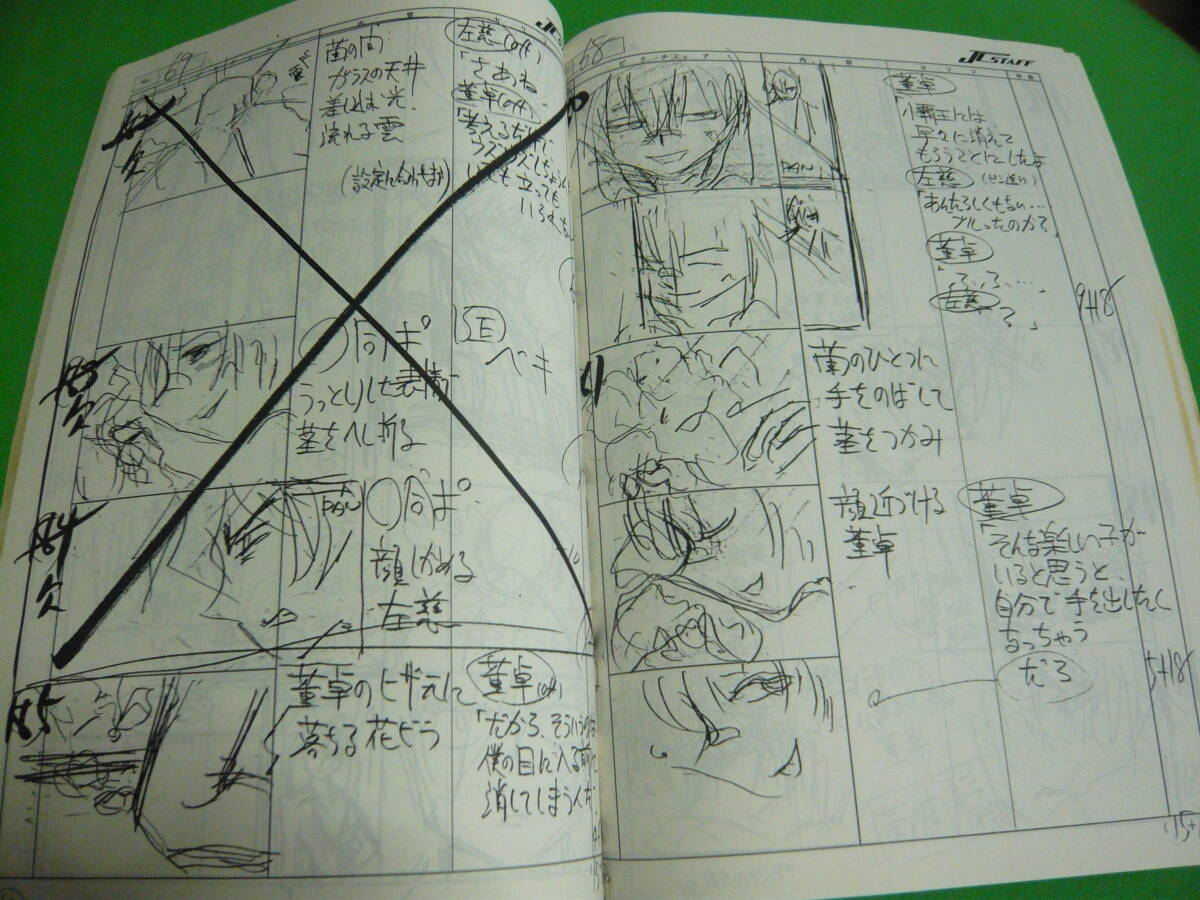 68
J.C.STAFF
董卓
「小覇王には
早々に消えて
もらうことにしたよ
左慈
「あんたらしくもない…
ブルったのか?
董卓
「ふふ…」
左慈
PAN
9+18
菌のひとつに
手をのばして
茎をつかみ
顔近づける
董卓
董卓
「そんな楽しい子が
いると思うと、
自分で手を出したく
なっちゃう
だろ
5+18
69
菌の間
ガラスの天井
差し込む光
流れる雲
左慈(off)
「さあね
董卓(off)
「考えるだけで
ウズウズしちゃって
いても立っても
欠
83
欠
○同ポ
うっとりした表情
茎をへし折る
SE
ベキ
84
欠
PAN
○同ポ
顔しかめる
左慈
85
董卓のヒザ元に
落ちる花びら
董卓(off)
「だから、そういうのは
僕の目に入る前に
消してしまうんだ